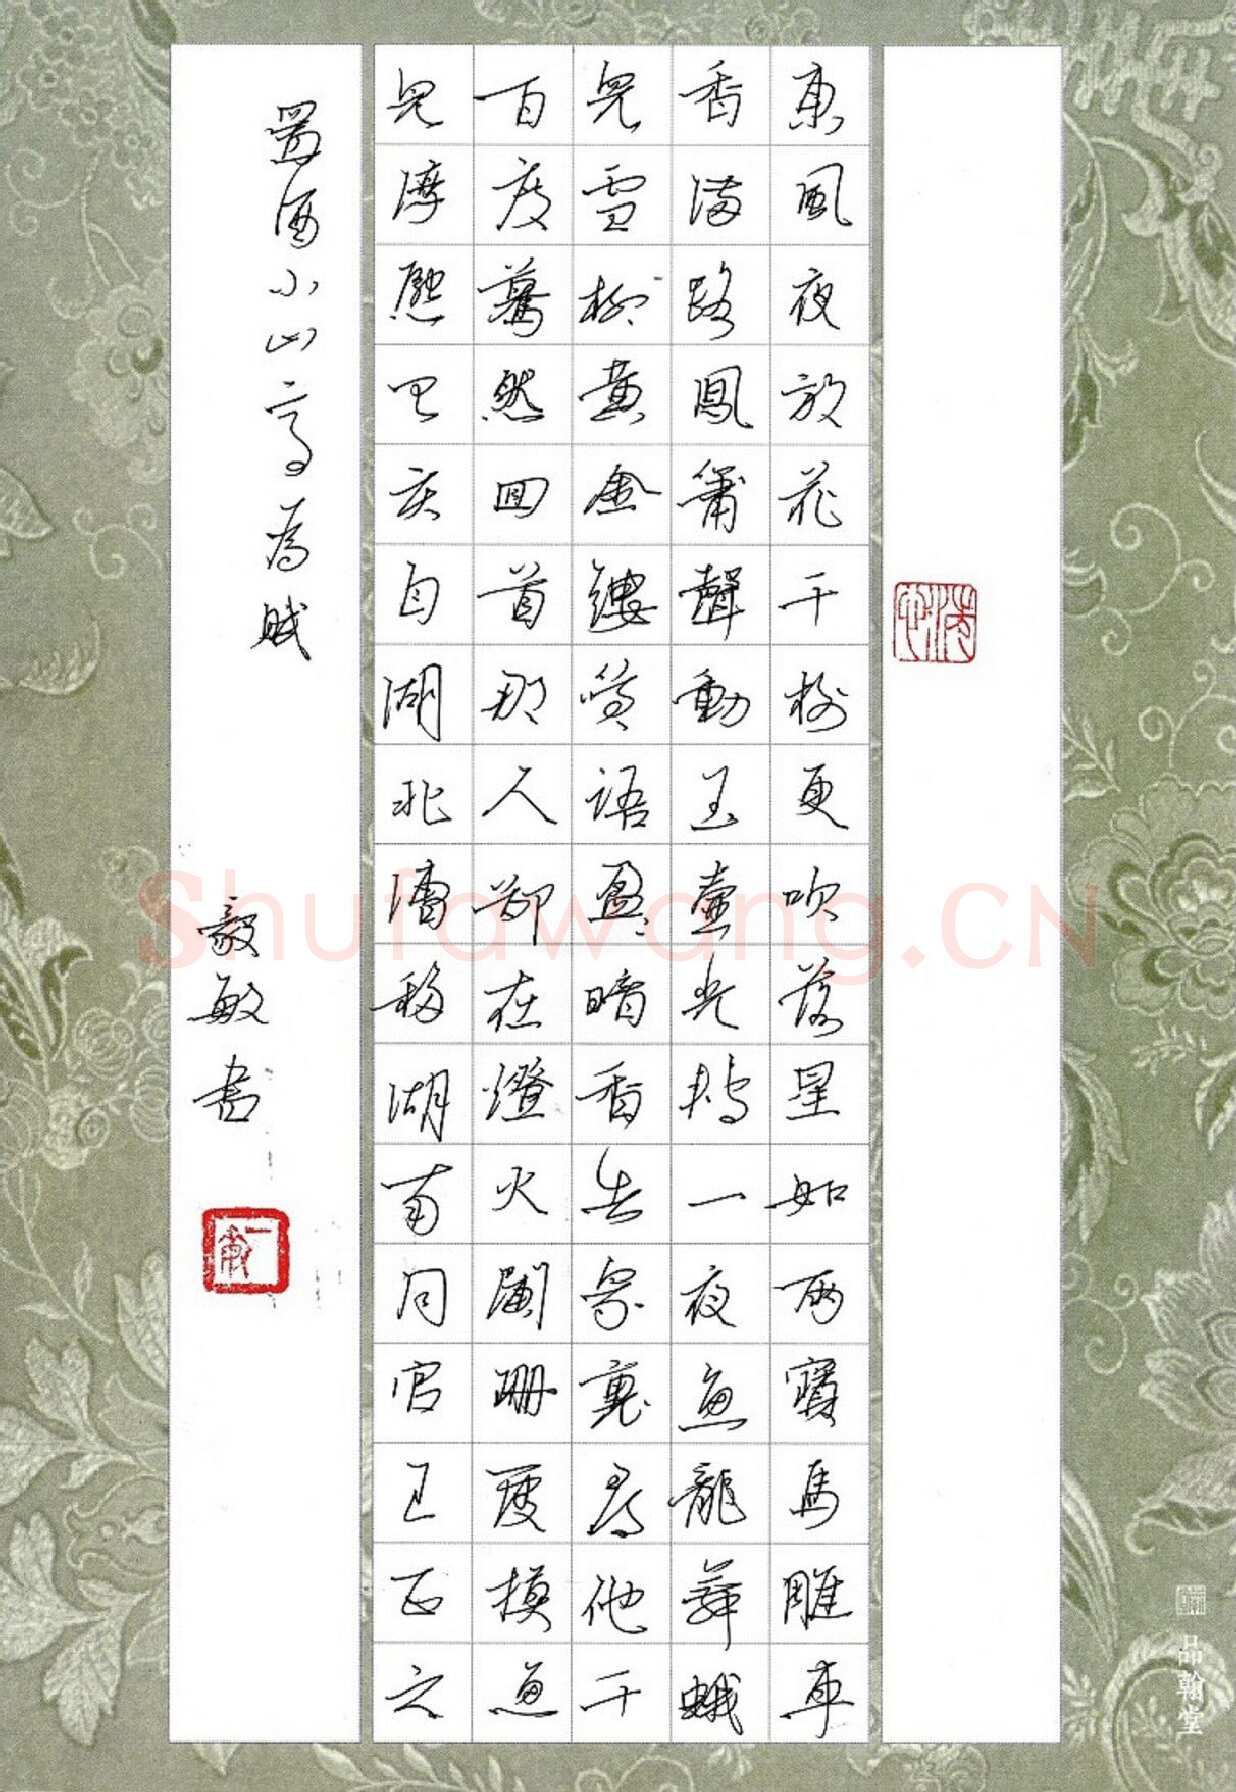 東風夜放花千樹更吹落星如雨寶馬雕車
香滿路鳳簫聲動玉壺光轉一夜魚龍舞蛾
兒雪柳黃金縷笑語盈盈暗香去眾裏尋他千
百度驀然回首那人卻在燈火闌珊處摸魚
兒淳熙己亥自湖北漕移湖南同官王正之
置酒小山亭為賦
毅敏書
品翰堂
Shufawang.CN